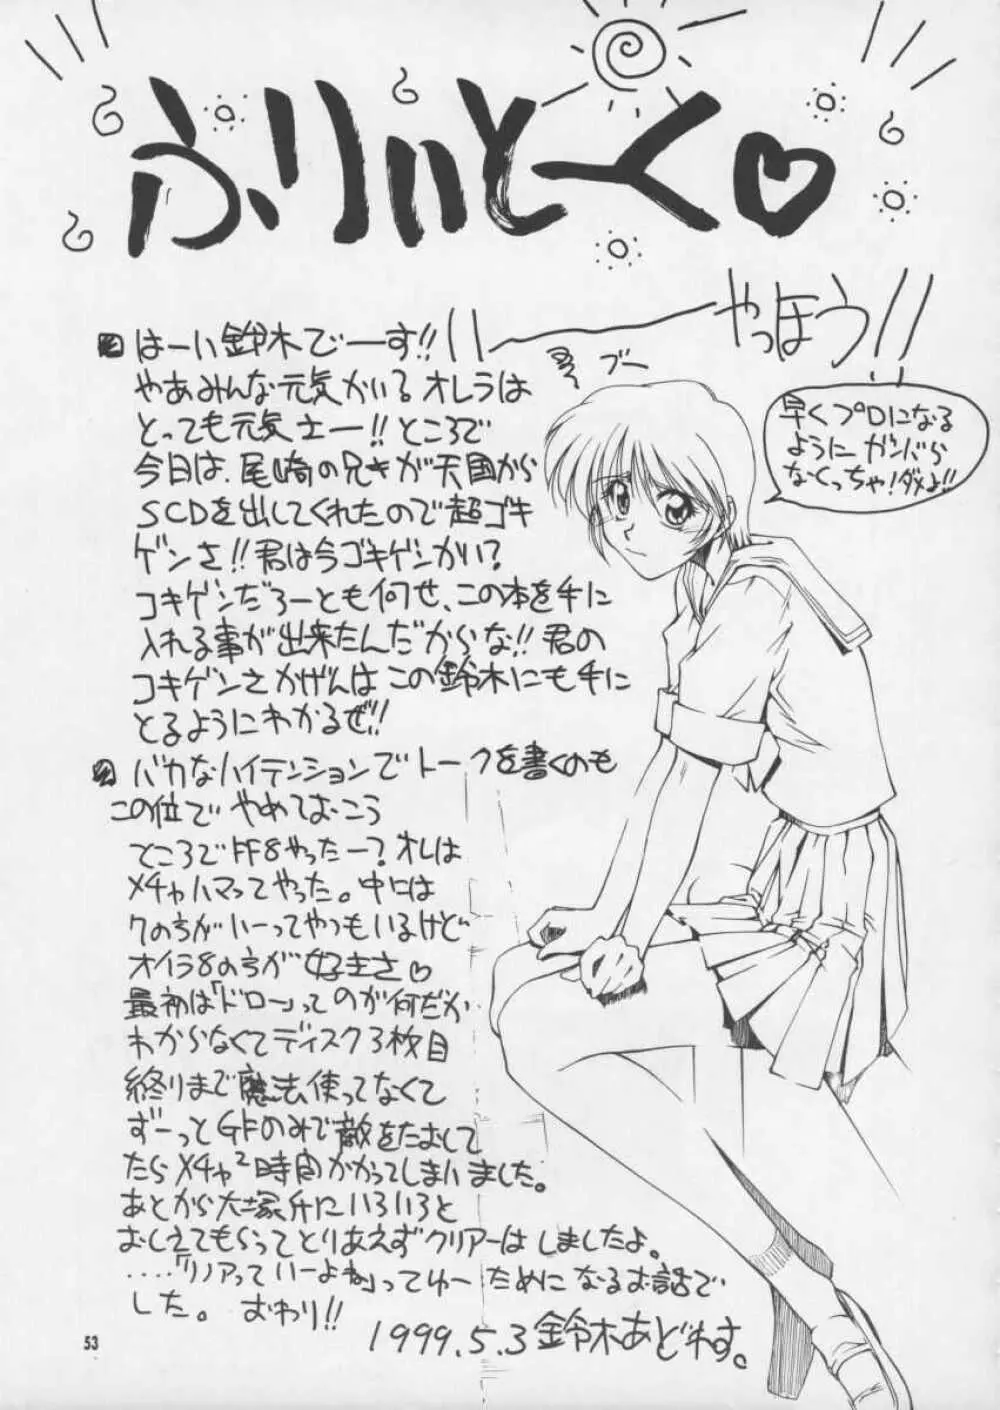 ふりぃとーく♡
やっほう!!
はーい鈴木でーす!!
やあみんな元気かいる オレラは
とっても元気士ー!! ところで
今日は、尾崎の兄キが天国から
SCDを出してくれたので超ゴキ
ゲンさ!! 君は今ゴキゲンかい?
ゴキゲンだろーとも何せ、この本を手に
入れる事が出来たんだからな!! 君の
ゴキゲンさかげんはこの鈴木にも手に
とるようにわかるぜ!!
バカなハイテンションでトークを書くのも
この位でやめておこう
ところでFF8やったー? オレは
メチャハマってやった。中には
7の方がいーってやつもいるけど
オイラ8の方が好きさ♡
最初は「ドロー」ってのが何だか
わからなくてディスク3枚目
終りまで魔法使ってなくて
ずーっとGFのみで敵をたおして
たらメチャ2時間かかってしまいました。
あとから大塚氏にいろいろと
おしえてもらってとりあえずクリアーはしましたよ。
....「リノアっていーよね」ってゆーためになるお話で
した。おわり!!
1999.5.3 鈴木あどれす。
ブー
早くプロになる
ようにガンバら
なくっちゃ!ダメよ!!
53